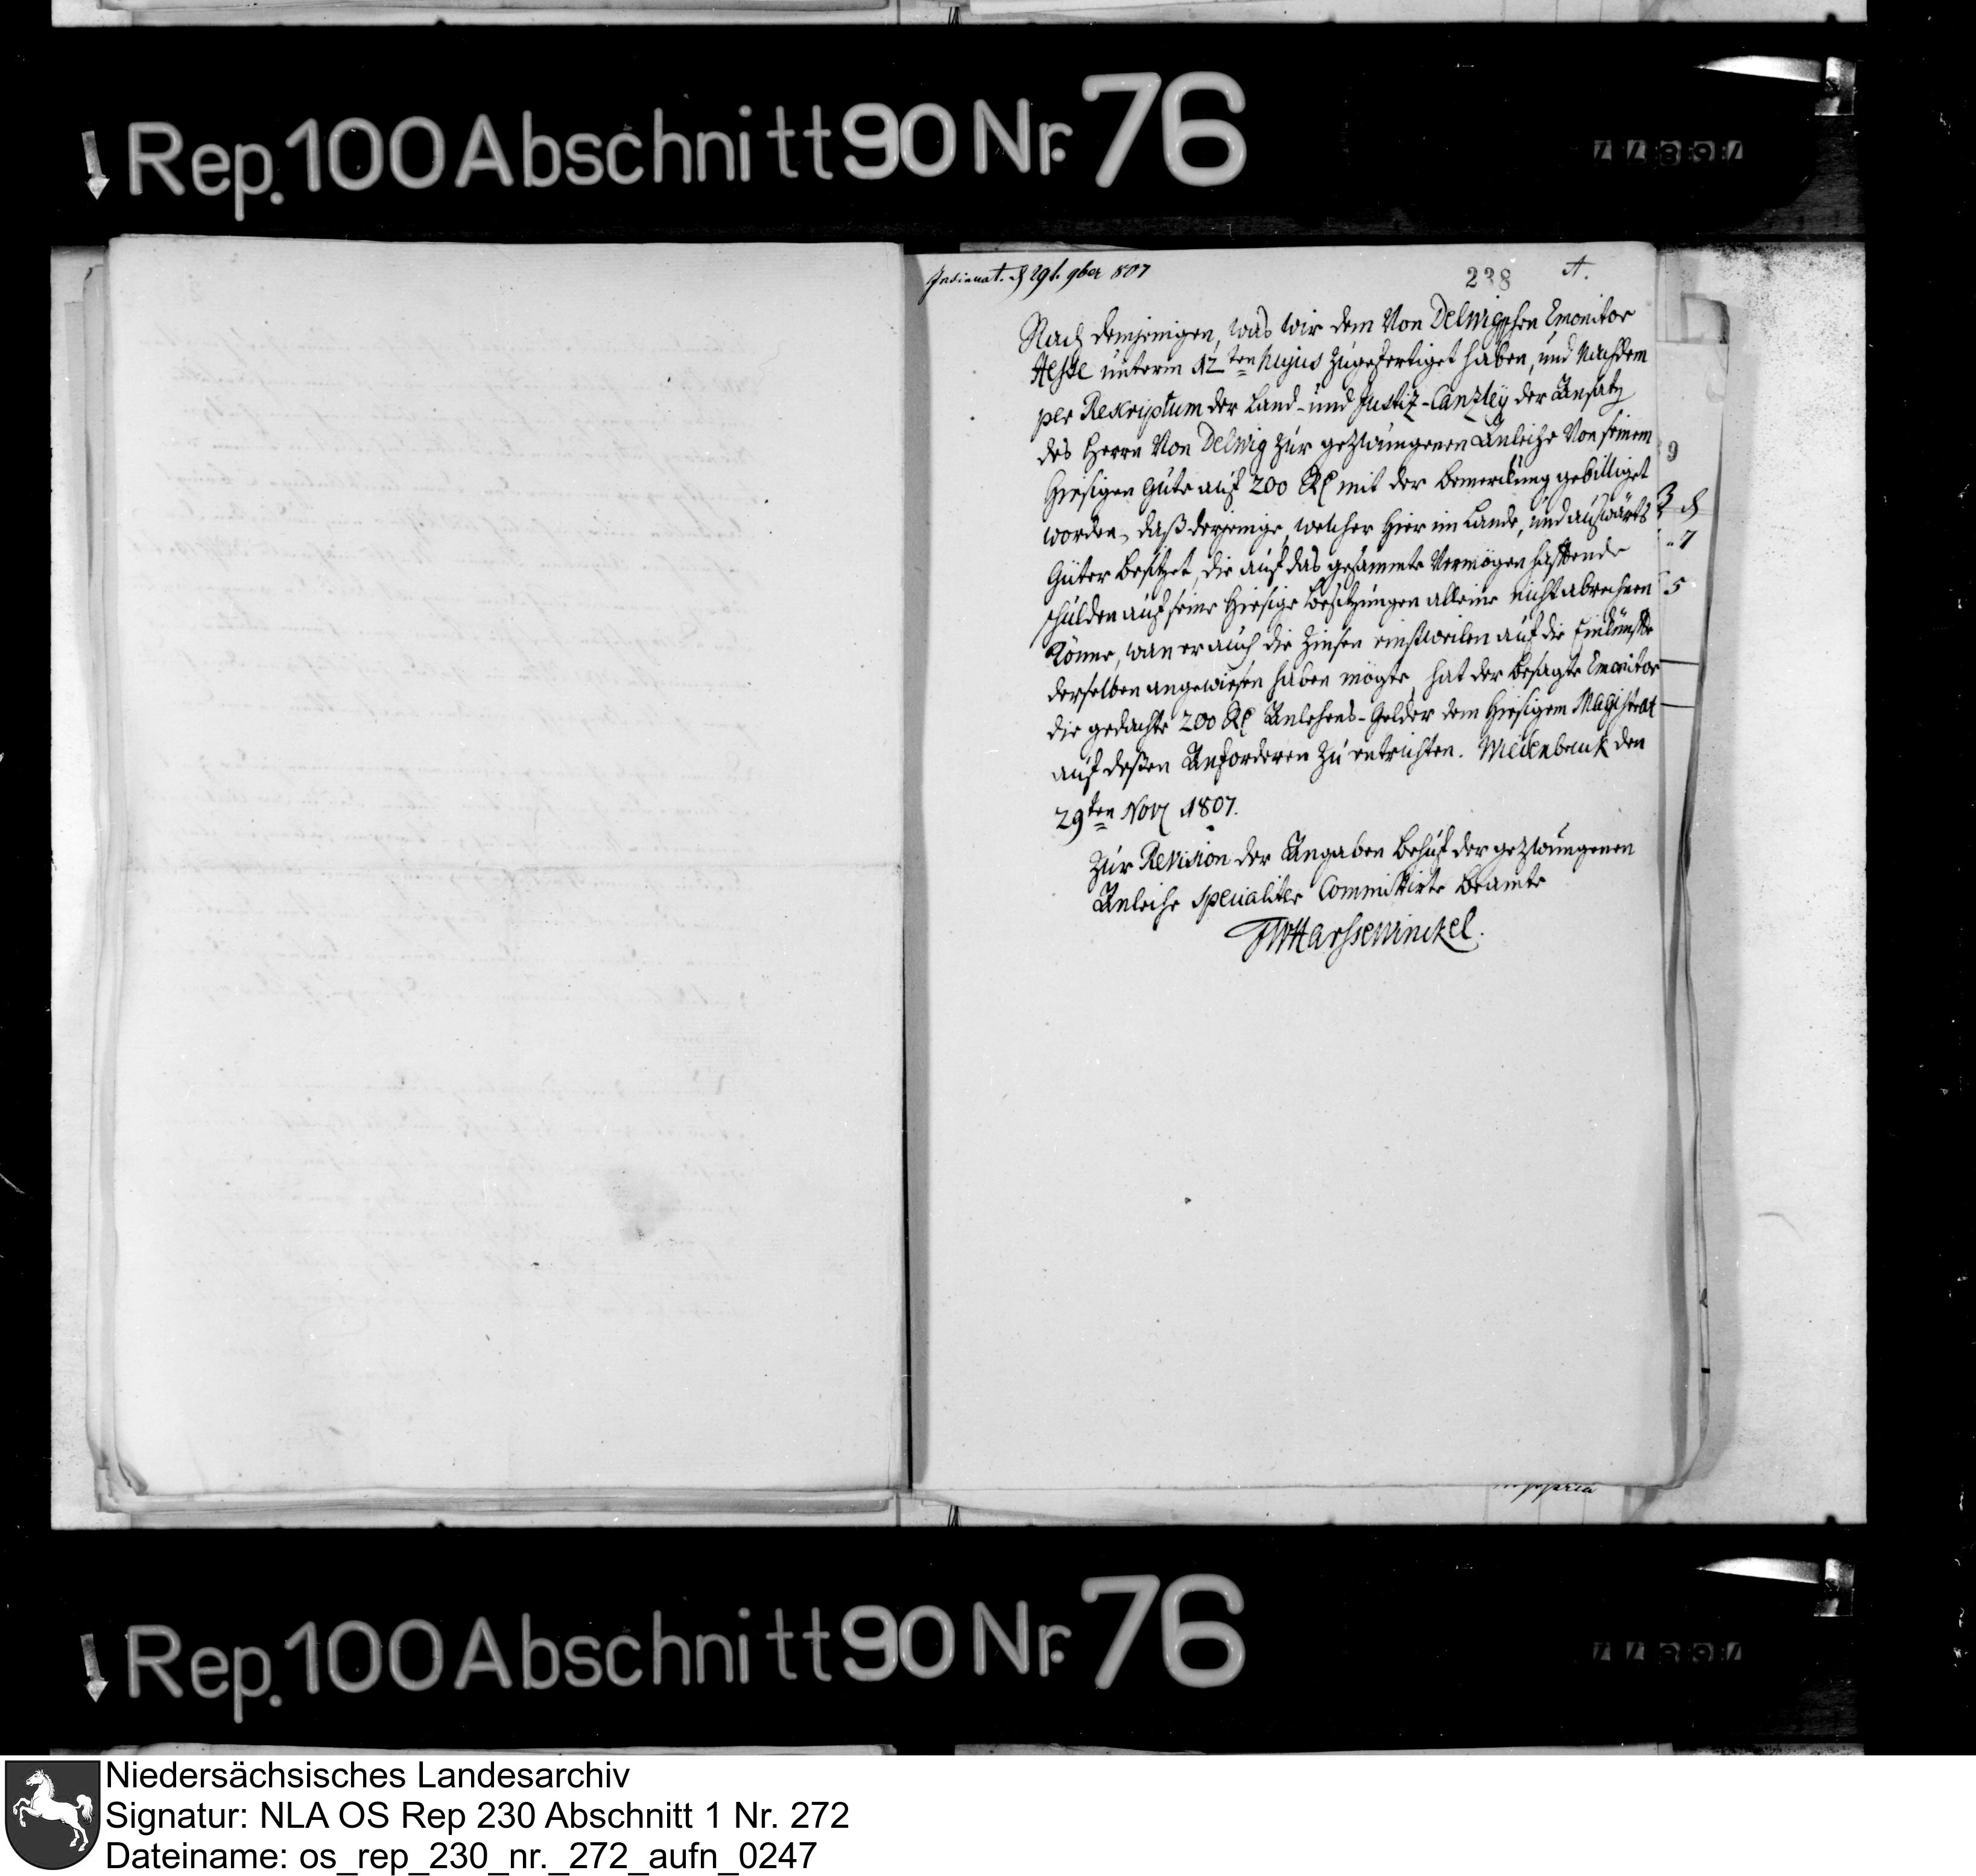 Rep. 100 Abschnitt 90 Nr. 76
Insinuat. d 29t. 9ber 807
238 A.
Nach demjenigen, was wir dem Von Delwigschen Emonitor
Hesse unterm 12ten hujus zugefertiget haben, und nachdem
per Reskriptum der Land- und Justiz-Canzley der Ansatz
des Herrn Von Delwig zur gezwungenen Anleihe Von seinem
hiesigen Gute auf 200 Rl mit der Bemerkung gebilliget
worden, daß derjenige, welcher hier im Lande, und auswärts
Güter besitzet, die auf das gesammte Vermögen haftende
schulden auf seine hiesige Besitzungen alleine nicht abrechnen
könne, wan er auch die Zinsen einstweilen auf die Einkünfte
derselben angewiesen haben mögte, hat der besagte Emonitor
die gedachte 200 Rl Anlehens-Gelder dem hiesigem Magistrat
auf deßen Anforderen zu entrichten. Wiedenbruk den
29ten Nov 1807.
Zur Revision der Angaben behuf der gezwungenen
Anleihe specialiter Committirte Beamte
Harssewinckel.
9
3
7
5
Rep. 100 Abschnitt 90 Nr. 76
Niedersächsisches Landesarchiv
Signatur: NLA OS Rep 230 Abschnitt 1 Nr. 272
Dateiname: os_rep_230_nr._272_aufn_0247